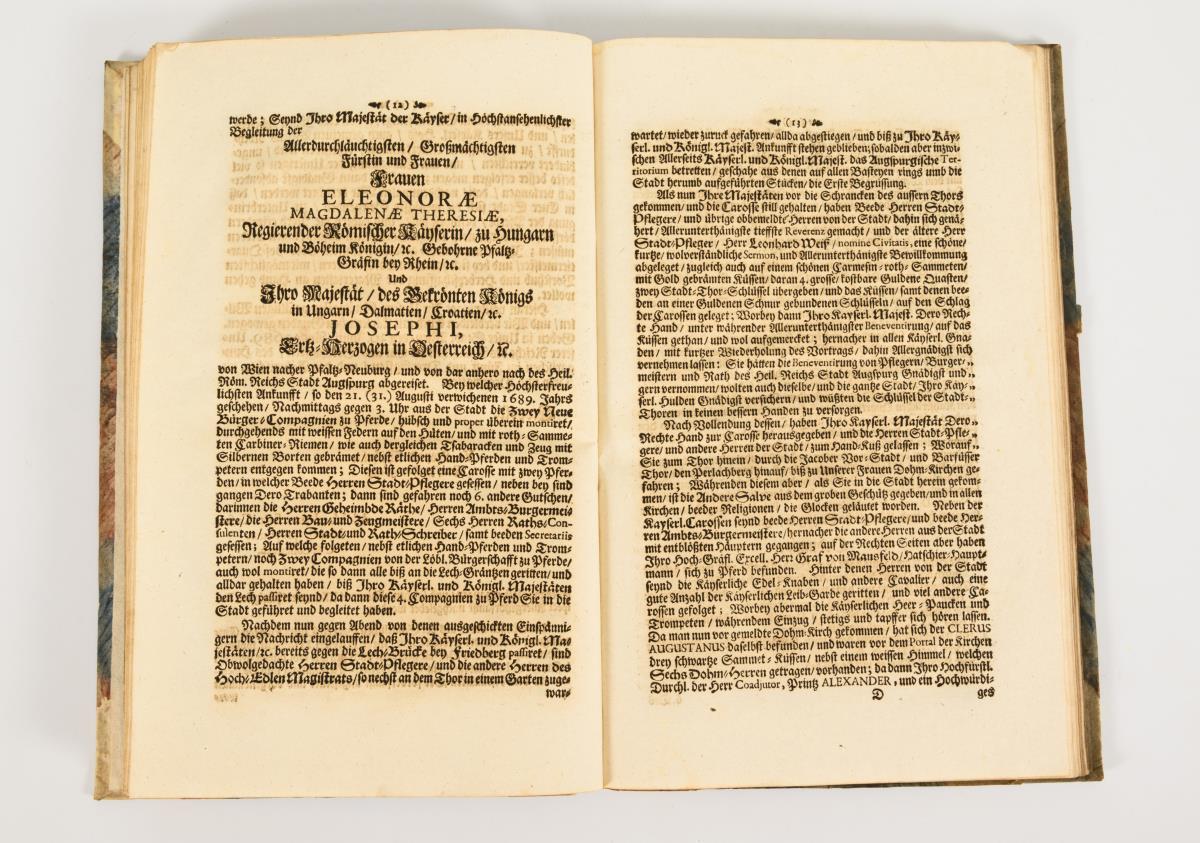 (12)
werde; Seynd Ihro Majestät der Käyser/ in Höchstansehenlichster
Begleitung der
Allerdurchläuchtigsten/ Großmächtigsten
Fürstin und Frauen/
Frauen
ELEONORÆ
MAGDALENÆ THERESIÆ,
Regierender Römischer Käyserin/ zu Hungarn
und Böheim Königin/ ꝛc. Gebohrne Pfaltz-
Gräfin bey Rhein/ ꝛc.
Und
Ihro Majestät/ des Gekrönten Königs
in Ungarn/ Dalmatien/ Croatien/ ꝛc.
JOSEPHI,
Ertz-Herzogen in Oesterreich/ ꝛc.
von Wien nacher Pfaltz-Neuburg/ und von dar anhero nach des Heil.
Röm. Reichs Stadt Augspurg abgereiset. Bey welcher Höchsterfreu-
lichsten Ankunfft/ so den 21. (31.) Augusti verwichenen 1689. Jahrs
geschehen/ Nachmittags gegen 3. Uhr aus der Stadt die zwey Neue
Bürger-Compagnien zu Pferde/ hübsch und proper überein montiret/
durchgehends mit weissen Federn auf den Hüten/ und mit roth-Samme-
ten Carbiner-Riemen/ wie auch dergleichen Tsabaracken und Zeug mit
Silbernen Borten gebrämet/ nebst etlichen Hand-Pferden und Trom-
petern entgegen kommen; Diesen ist gefolget eine Carosse mit zwey Pfer-
den/ in welcher Beede Herren Stadt-Pflegere gesessen/ neben bey sind
gangen Dero Trabanten; dann sind gefahren noch 6. andere Gutschen/
darinnen die Herren Geheimbde Räthe/ Herren Ambts-Burgermei-
stere/ die Herren Bau- und Zeugmeistere/ Sechs Herren Raths-Con-
sulenten/ Herren Stadt- und Rath-Schreiber/ samt beeden Secretariis
gesessen; Auf welche folgeten/ nebst etlichen Hand-Pferden und Trom-
petern/ noch Zwey Compagnien von der Löbl. Bürgerschafft zu Pferde/
auch wol montiret/ die so dann alle biß an die Lech-Gräntzen geritten/ und
alldar gehalten haben/ biß Ihro Käyserl. und Königl. Majestäten
den Lech passiret seynd/ da dann diese 4. Compagnien zu Pferd Sie in die
Stadt geführet und begleitet haben.
Nachdem nun gegen Abend von denen ausgeschickten Einspänni-
gern die Nachricht eingelauffen/ daß Ihro Käyserl. und Königl. Ma-
jestäten/ ꝛc. bereits gegen die Lech-Brücke bey Friedberg passiret/ sind
Obwolgedachte Herren Stadt-Pflegere/ und die andere Herren des
Hoch-Edlen Magistrats/ so nechst an dem Thor in einem Garten zuge-
war-
(13)
wartet/ wieder zuruck gefahren/ allda abgestiegen/ und biß zu Ihro Käy-
serl. und Königl. Majest. Ankunfft stehen geblieben; sobalden aber inzwi-
schen Allerseits Käyserl. und Königl. Majest. das Augspurgische Ter-
ritorium betretten/ geschahe aus denen auf allen Basteyen rings umb die
Stadt herumb aufgeführten Stücken/ die Erste Begrüssung.
Als nun Ihre Majestäten vor die Schrancken des aussern Thors
gekommen/ und die Carosse still gehalten/ haben Beede Herren Stadt-
Pflegere/ und übrige obbemeldte Herren von der Stadt/ dahin sich genä-
hert/ Allerunterthänigste tieffste Reverenz gemacht/ und der ältere Herr
Stadt-Pfleger/ Herr Leonhard Weiß/ nomine Civitatis, eine schöne/
kurtze/ wolverständliche Sermon, und Allerunterthänigste Bewillkommung
abgeleget/ zugleich auch auf einem schönen Carmesin-roth-Sammeten/
mit Gold gebrämten Küssen/ daran 4. grosse/ kostbare Guldene Quasten/
zwey Stadt-Thor-Schlüssel übergeben/ und das Küssen/ samt denen bee-
den an einer Guldenen Schnur gebundenen Schlüsseln/ auf den Schlag
der Carossen geleget; Worbey dann Ihro Käyserl. Majest. Dero Rech-
te Hand/ unter währender Allerunterthänigster Beneventirung/ auf das
Küssen gethan/ und wol aufgemercket; hernacher in allen Käyserl. Gna-
den/ mit kurtzer Wiederholung des Vortrags/ dahin Allergnädigst sich
vernehmen lassen: Sie hätten die Beneventirung von Pflegern/ Burger-„
meistern und Rath des Heil. Reichs Stadt Augspurg Gnädigst und„
gern vernommen/ wolten auch dieselbe/ und die gantze Stadt/ Ihro Käy-„
serl. Hulden Gnädigst versichern/ und wüßten die Schlüssel der Stadt-„
Thoren in keinen bessern Handen zu versorgen.
Nach Vollendung dessen/ haben Ihro Kayserl. Majestät Dero„
Rechte Hand zur Carosse herausgegeben/ und die Herren Stadt-Pfle-„
gere/ und andere Herren der Stadt/ zum Hand-Kuß gelassen; Worauf„
Sie zum Thor hinein/ durch die Jacober Vor-Stadt/ und Barfüsser
Thor/ den Perlachberg hinauf/ biß zu Unserer Frauen Dohm-Kirchen ge-
fahren; Währenden diesem aber/ als Sie in die Stadt herein gekom-
men/ ist die Andere Salve aus dem groben Geschütz gegeben/ und in allen
Kirchen/ beeder Religionen/ die Glocken geläutet worden. Neben der
Kayserl. Carossen seynd beede Herren Stadt-Pflegere/ und beede Her-
ren Ambts-Burgermeistere/ hernacher die andere Herren aus der Stadt
mit entblößten Häuptern gegangen; auf der Rechten Seiten aber haben
Ihro Hoch-Gräfl. Excell. Herr Graf von Mansfeld/ Hatschier-Haupt-
mann/ sich zu Pferd befunden. Hinter denen Herren von der Stadt
seynd die Käyserliche Edel-Knaben/ und andere Cavalier/ auch eine
gute Anzahl der Käyserlichen Leib-Garde geritten/ und viel andere Ca-
rossen gefolget; Worbey abermal die Käyserlichen Heer-Paucken und
Trompeten/ währendem Einzug/ stetigs und tapffer sich hören lassen.
Da man nun vor gemeldte Dohm-Kirch gekommen/ hat sich der CLERUS
AUGUSTANUS daselbst befunden/ und waren vor dem Portal der Kirchen
drey schwartze Sammet-Küssen/ nebst einem weissen Himmel/ welchen
Sechs Dohm-Herren getragen/ vorhanden; da dann Ihro Hochfürstl.
Durchl. der Herr Coadjutor, Printz ALEXANDER, und ein Hochwürdi-
D ges